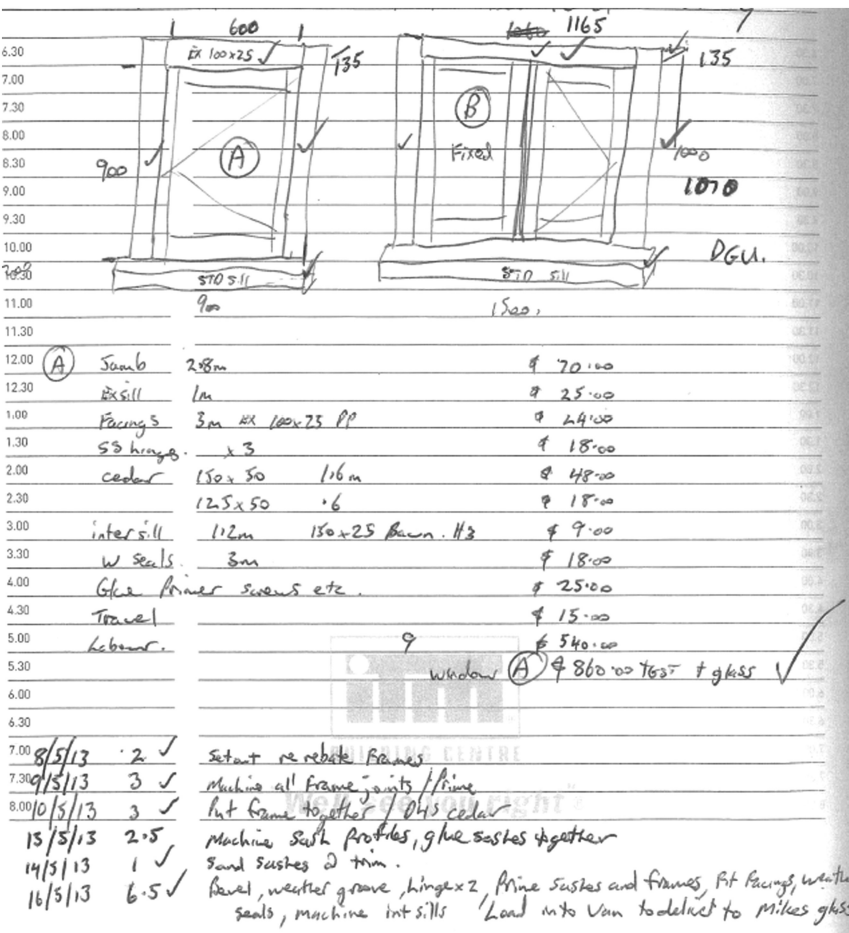 600 1165
6.30 Ex 100x25 ✓ 135 ✓ ✓ ✓ 135
7.00
7.30 B
8.00 A Fixed 1000
8.30 900 ✓
9.00 1070
9.30
10.00 DGU.
10.30 STD Sill STD Sill
11.00 900 1500.
11.30
12.00 A Jamb 2.8m $ 70.00
12.30 Ex sill 1m $ 25.00
1.00 Facings 3m Ex 100x25 PP $ 24.00
1.30 SS hinges. x 3 $ 18.00
2.00 cedar 150x50 1.6m $ 48.00
2.30 125x50 .6 $ 18.00
3.00 inter sill 1.2m 150x25 H3 $ 9.00
3.30 W Seals. 3m $ 18.00
4.00 Glue Primer screws etc. $ 25.00
4.30 Travel $ 15.00
5.00 Labour. 9 $ 540.00
5.30 window A $ 860.00 + GST + glass ✓
6.00
6.30 itm
BUILDING CENTRE
7.00 8/5/13 .2 ✓ Setout re rebate frames
7.30 9/5/13 3 ✓ Machine all frame joints / Prime
8.00 10/5/13 3 ✓ Put frame together / D4s cedar
We'll see you right
13/5/13 2.5 Machine Sash profiles, glue sashes together
14/5/13 1 ✓ Sand sashes & trim.
16/5/13 6.5 ✓ Bevel, weather groove, hinge x2, Prime sashes and frames, Fit Facings, weath
seals, machine int sills / Load into Van to deliver to Mikes glass